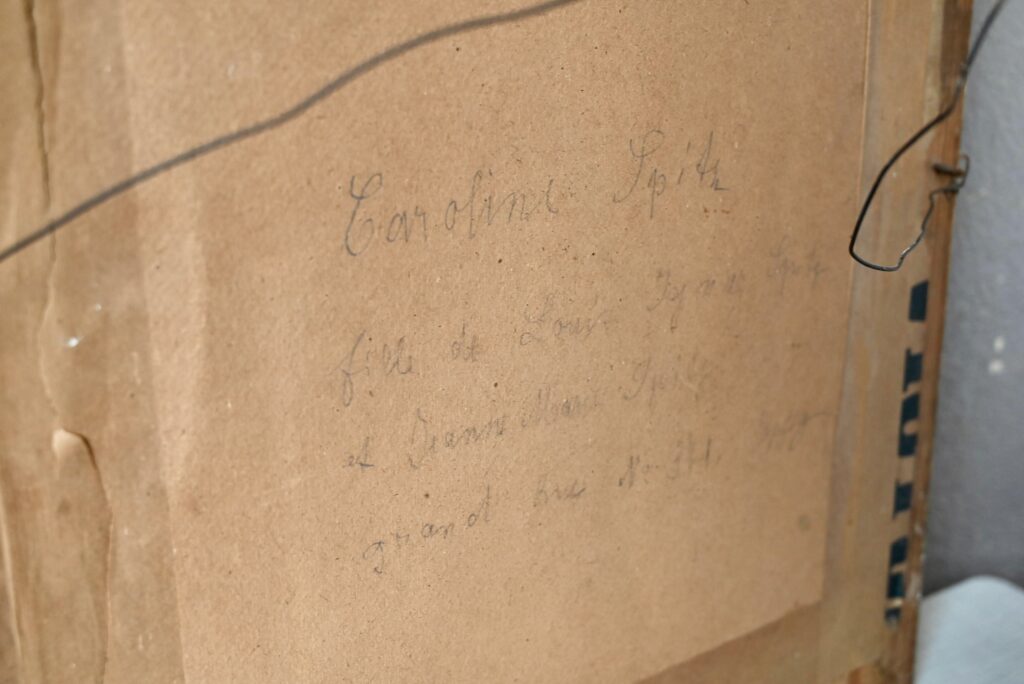 Caroline Spitz
fille de Louis Spitz
et Jeanne Marie Spitz
grand rue No